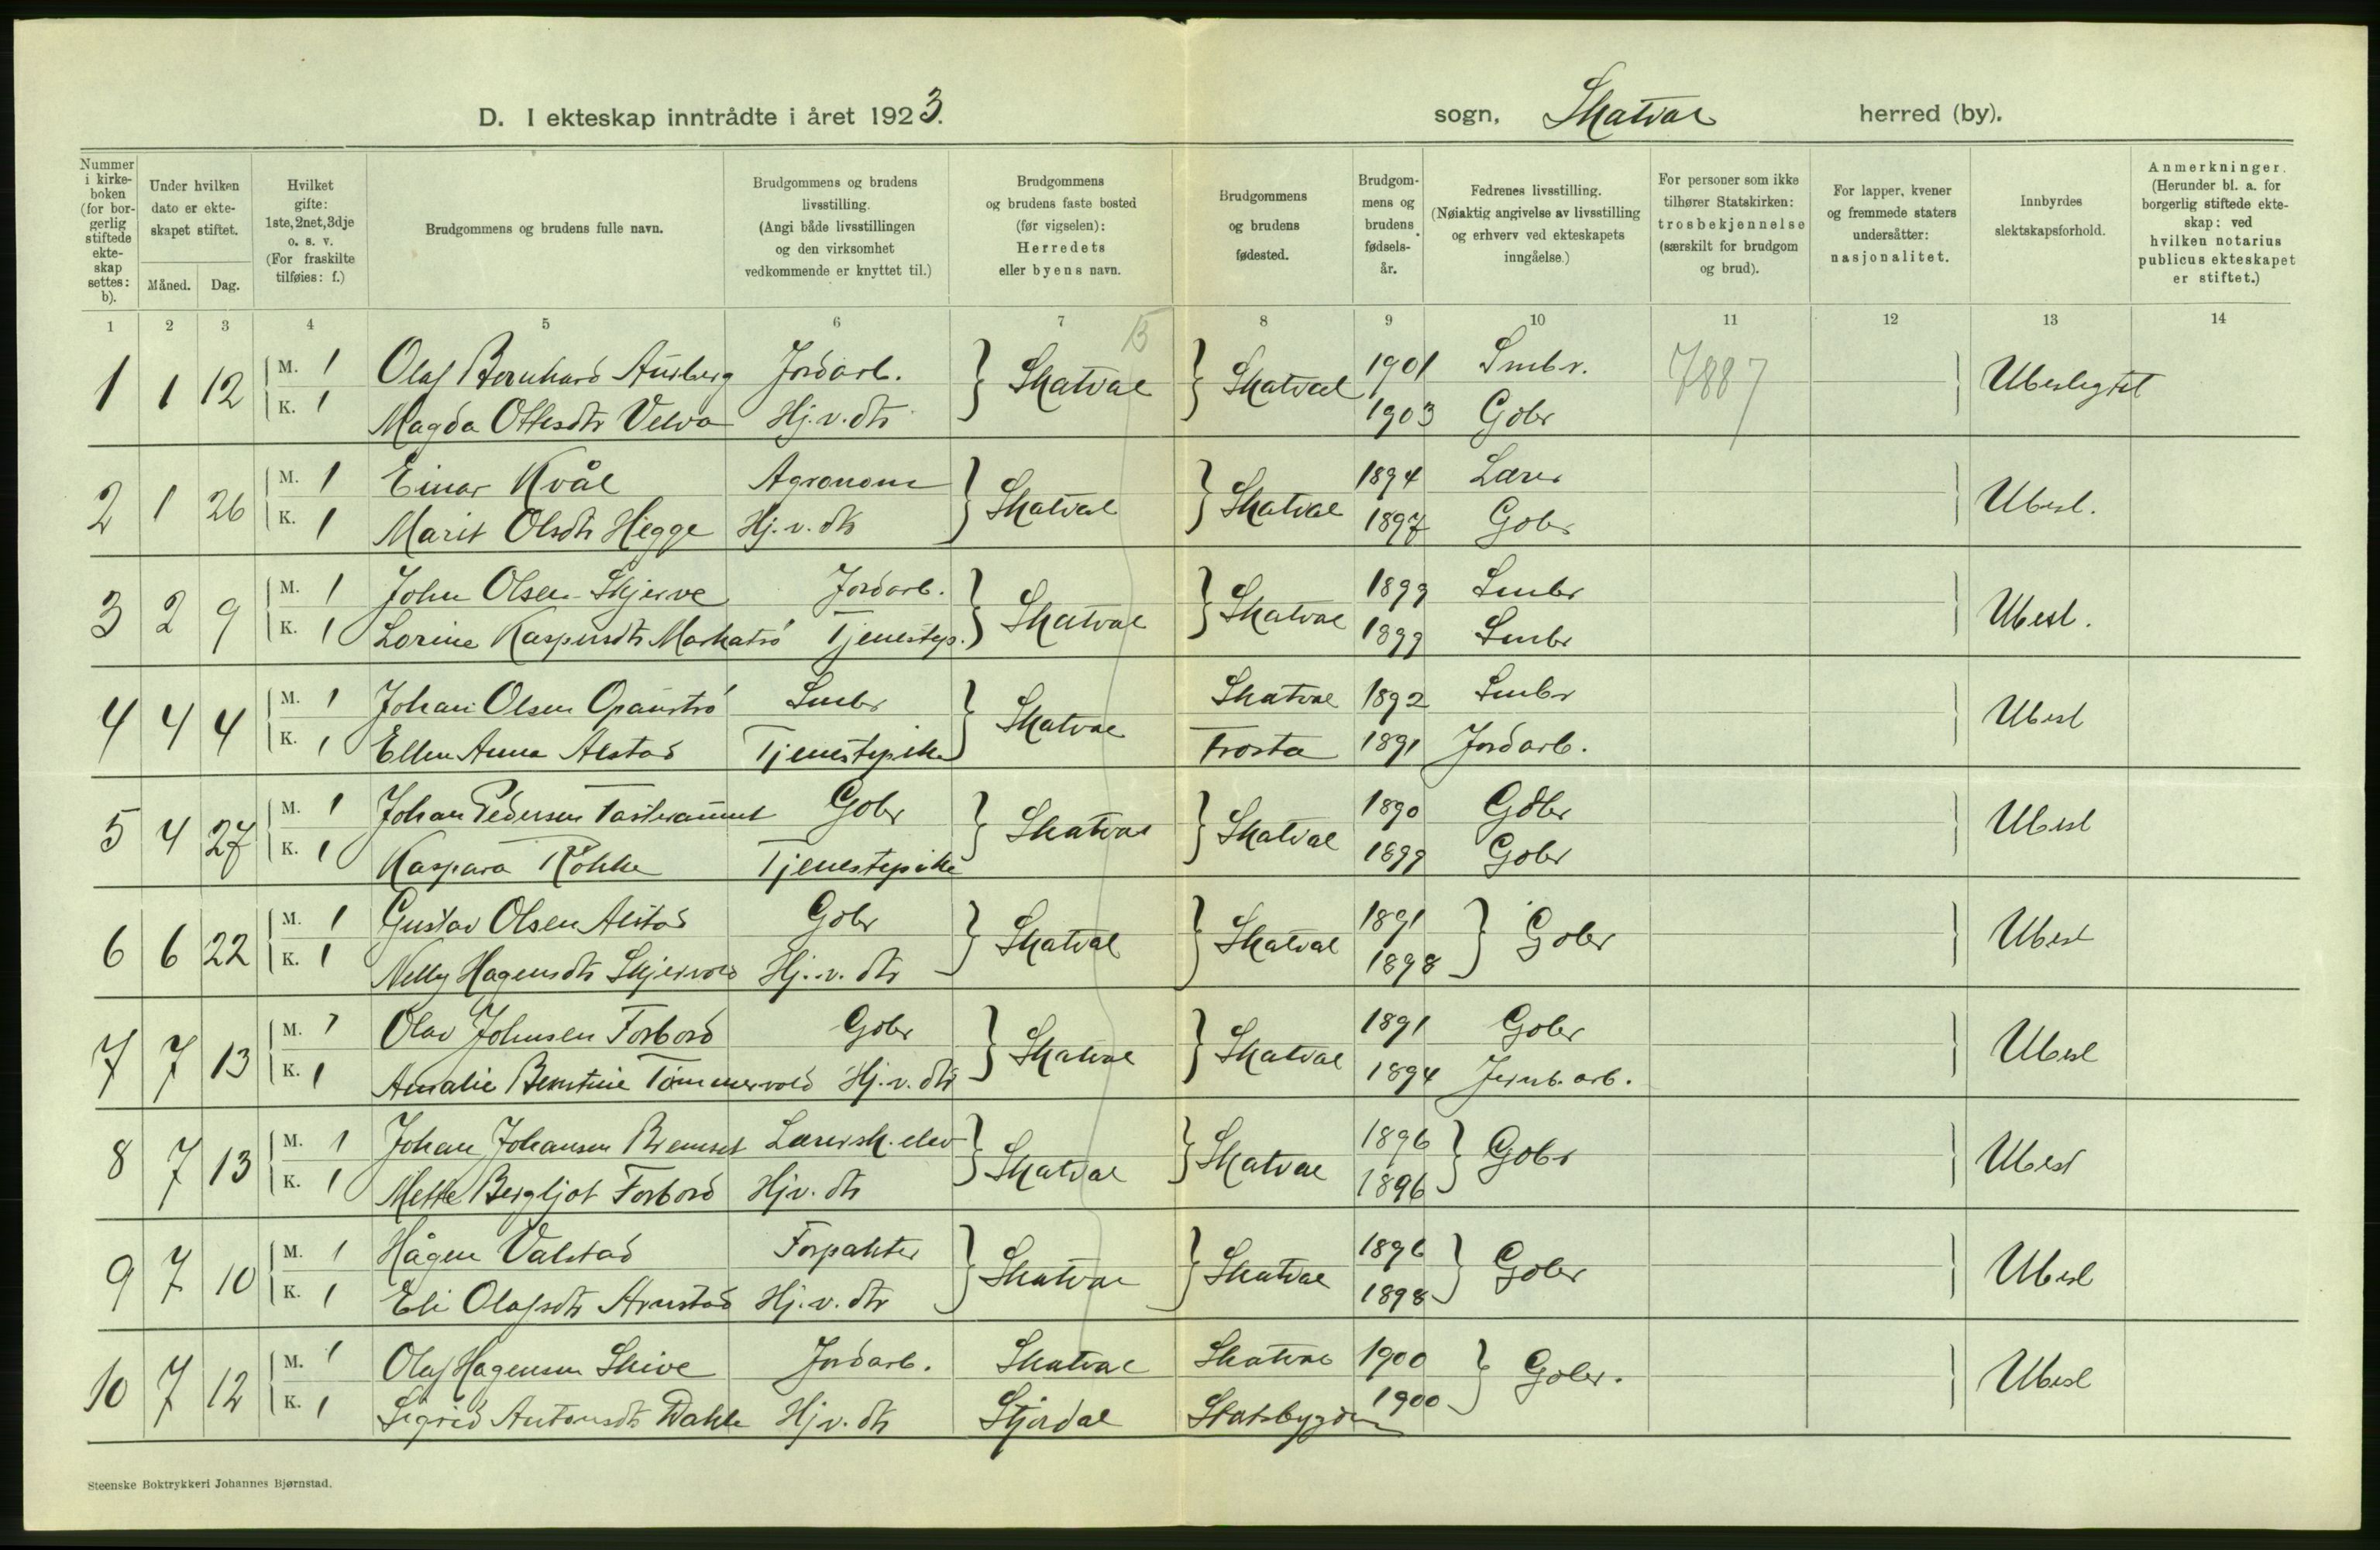 D. I ekteskap inntrådte i året 1923.
sogn, Skatval herred (by).
Nummer i kirke-boken (for bor-gerlig stiftede ekte-skap settes: b).
Under hvilken dato er ekte-skapet stiftet.
Måned. Dag.
Hvilket gifte: 1ste, 2net, 3dje o. s. v. (For fraskilte tilføies: f.)
Brudgommens og brudens fulle navn.
Brudgommens og brudens livsstilling. (Angi både livsstillingen og den virksomhet vedkommende er knyttet til.)
Brudgommens og brudens faste bosted (før vigselen): Herredets eller byens navn.
Brudgommens og brudens fødested.
Brudgom-mens og brudens fødsels-år.
Fedrenes livsstilling. (Nøiaktig angivelse av livsstilling og erhverv ved ekteskapets inngåelse.)
For personer som ikke tilhører Statskirken: trosbekjennelse (særskilt for brudgom og brud).
For lapper, kvener og fremmede staters undersåtter: nasjonalitet.
Innbyrdes slektskapsforhold.
Anmerkninger. (Herunder bl. a. for borgerlig stiftede ekte-skap: ved hvilken notarius publicus ekteskapet er stiftet.)
1 2 3 4 5 6 7 8 9 10 11 12 13 14
1 1 12 M. 1 Olaf Bernhard Auberg Jordarb. Skatval Skatval 1901 Smbr. 7887 Ubeslegtet
K. 1 Magda Ottesdtr Velva Hj.v.dtr 1903 Gdbr
2 1 26 M. 1 Einar Kvål Agronom Skatval Skatval 1894 Lærer Ubesl.
K. 1 Marit Olsdtr Hegge Hj.v.dtr 1897 Gdbr
3 2 9 M. 1 John Olsen Skjerve Jordarb. Skatval Skatval 1899 Smbr Ubesl.
K. 1 Lorine Kaspersdtr Tjenestep. 1899 Smbr
4 4 4 M. 1 Johan Olsen Smbr Skatval Skatval 1892 Smbr Ubesl
K. 1 Ellen Anna Alstad Tjenestepike Frosta 1891 Jordarb.
5 4 27 M. 1 Johan Pedersen Gdbr Skatval Skatval 1890 Gdbr Ubesl
K. 1 Kaspara Røkke Tjenestepike 1899 Gdbr
6 6 22 M. 1 Gustav Olsen Alstad Gdbr Skatval Skatval 1891 Gdbr Ubesl
K. 1 Nelly Hagensdtr Skjervold Hj.v.dtr 1898
7 7 13 M. 1 Olav Johnsen Forbord Gdbr Skatval Skatval 1891 Gdbr Ubesl
K. 1 Amalie Berntine Tømmervold Hj.v.dtr 1894 Jernb.arb.
8 7 13 M. 1 Johan Johansen Bremset Lærersk.elev Skatval Skatval 1896 Gdbr Ubesl
K. 1 Mette Bergljot Forbord Hjv.dtr 1896
9 7 10 M. 1 Hågen Valstad Forpakter Skatval Skatval 1896 Gdbr Ubesl
K. 1 Eli Olafsdtr Arnstad Hj.v.dtr 1898
10 7 12 M. 1 Olaf Hagensen Skive Jordarb. Skatval Skatval 1900 Gdbr. Ubesl
K. 1 Sigrid Antonsdtr Dahle Hjv.dtr Stjørdal Statsbygden 1900
Steenske Boktrykkeri Johannes Bjørnstad.